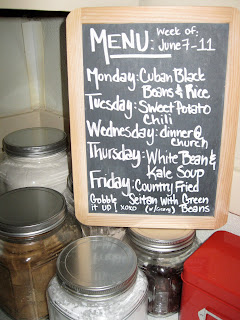 MENU: Week of:
June 7-11
Monday: Cuban Black
Beans & Rice
Tuesday: Sweet Potato
Chili
Wednesday: dinner @
church
Thursday: White Bean &
Kale Soup
Friday: Country Fried
Seitan with Green
Beans
(w/Gravy)
Gobble
it up! xoxo